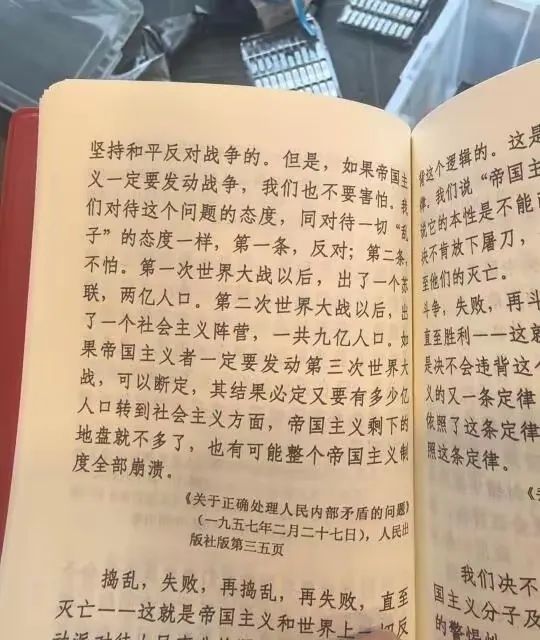 坚持和平反对战争的。但是，如果帝国主
义一定要发动战争，我们也不要害怕。我
们对待这个问题的态度，同对待一切“乱
子”的态度一样，第一条，反对；第二条，
不怕。第一次世界大战以后，出了一个苏
联，两亿人口。第二次世界大战以后，出
了一个社会主义阵营，一共九亿人口。如
果帝国主义者一定要发动第三次世界大
战，可以断定，其结果必定又要有多少亿
人口转到社会主义方面，帝国主义剩下的
地盘就不多了，也有可能整个帝国主义制
度全部崩溃。
《关于正确处理人民内部矛盾的问题》
（一九五七年二月二十七日），人民出
版社版第三五页
捣乱，失败，再捣乱，再失败，直至
灭亡——这就是帝国主义和世界上一切反
背这个逻辑的。这是
律。我们说“帝国主
说它的本性是不能
决不肯放下屠刀，
至他们的灭亡。
斗争，失败，再斗
直至胜利——这就
是决不会违背这个
义的又一条定律
依照了这条定律
照这条定律。
我们决不
国主义分子及